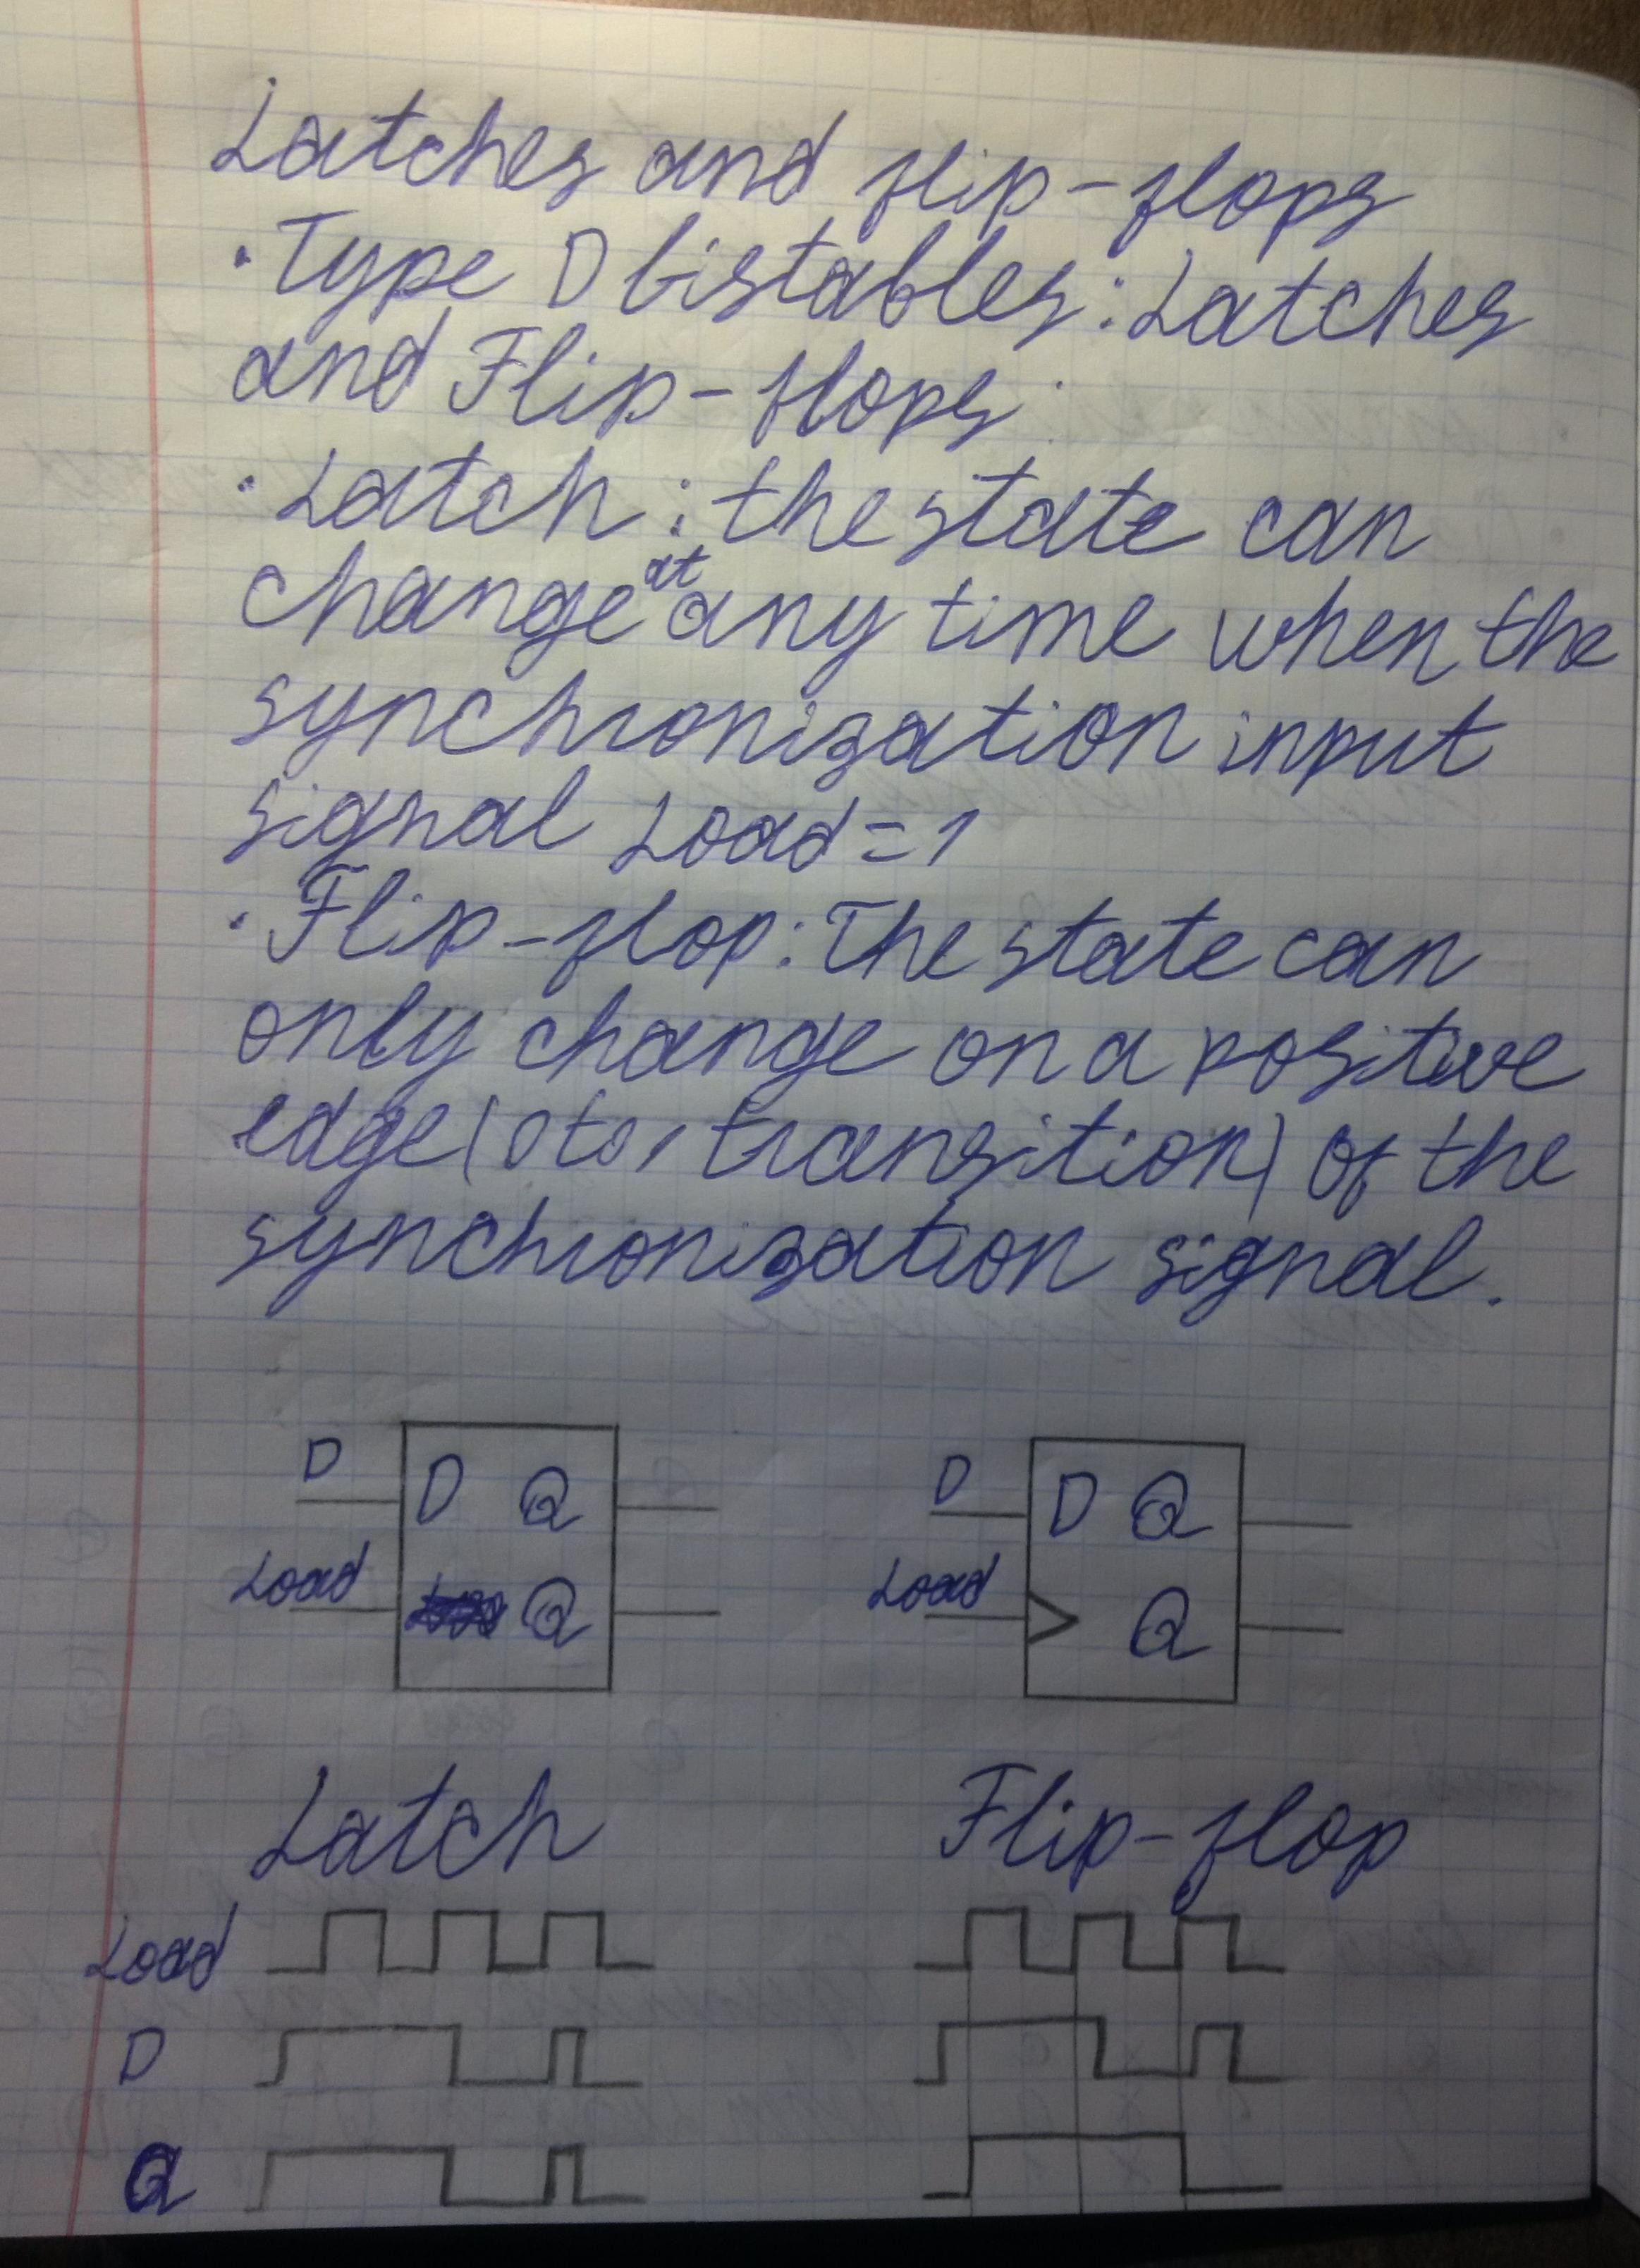 Latches and flip-flops
· Type D bistables: Latches
and Flip-flops
· Latch: the state can
change at any time when the
synchronization input
signal Load=1
· Flip-flop: The state can
only change on a positive
edge (0 to 1 transition) of the
synchronization signal.
D D Q
Load Q
D D Q
Load > Q
Latch Flip-flop
Load
D
Q